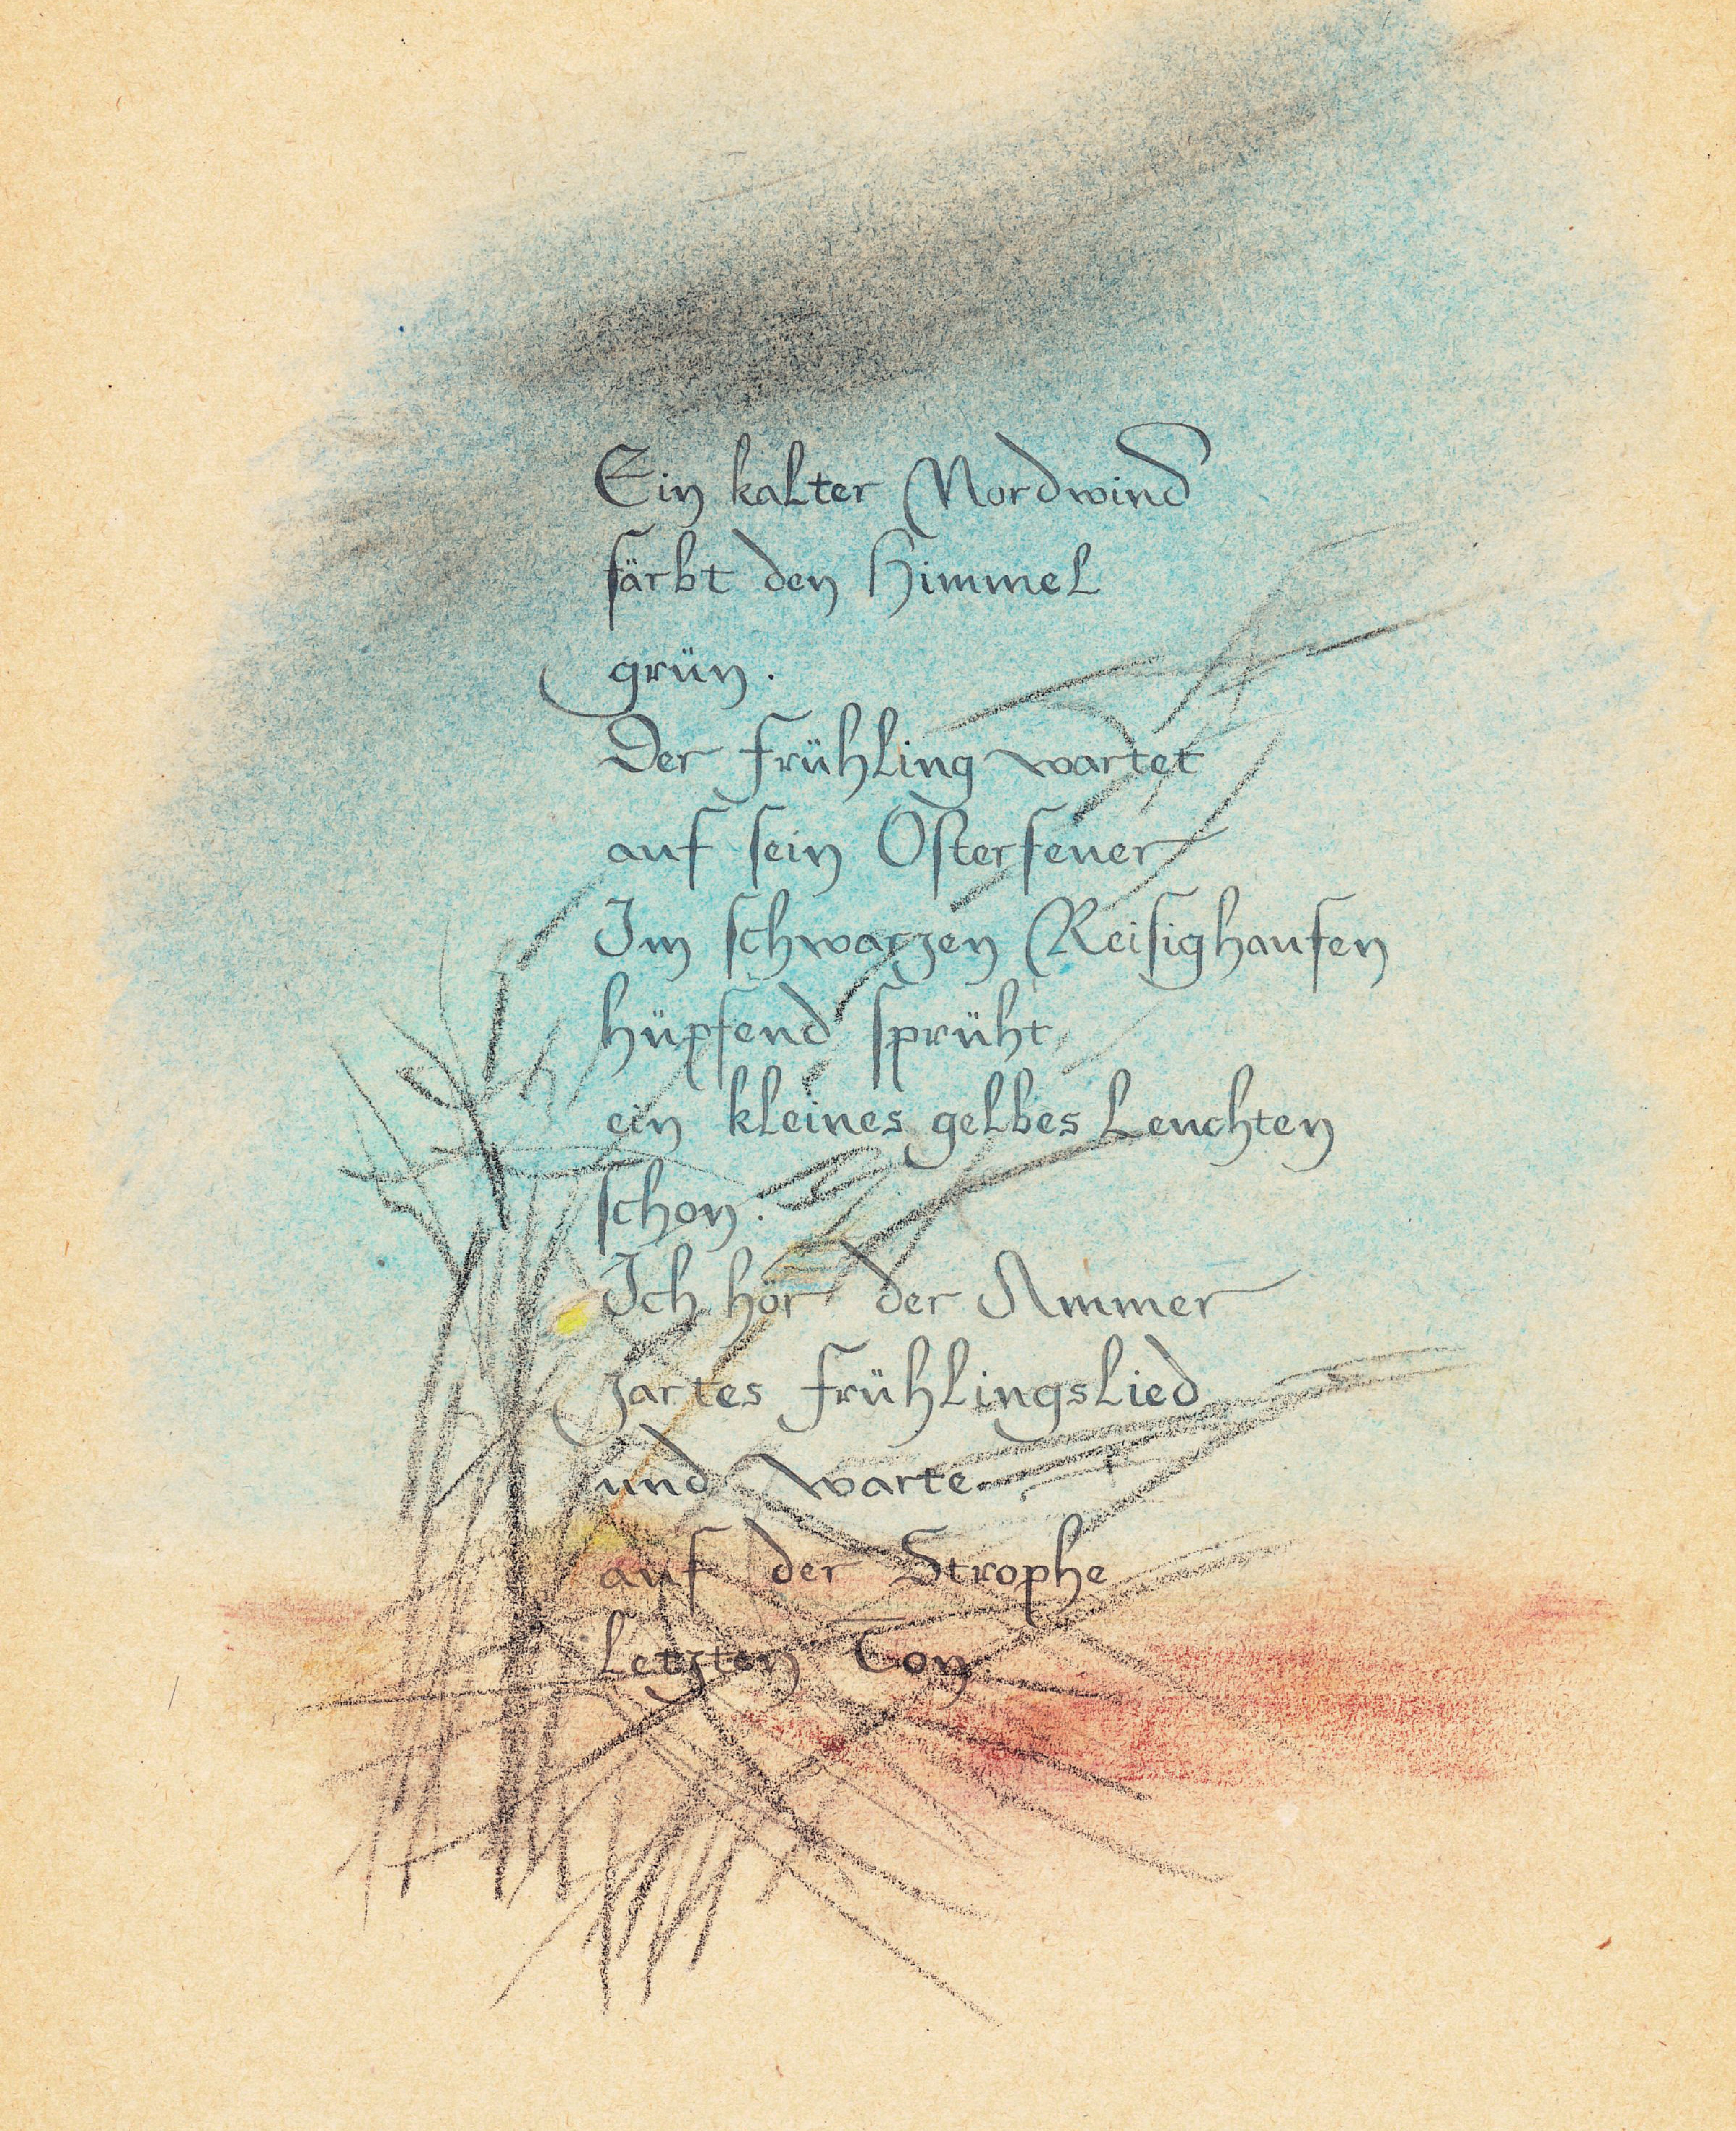 Ein kalter Nordwind
färbt den Himmel
grün.
Der Frühling wartet
auf sein Osterfeuer
Im schwarzen Reisighaufen
hüpfend sprüht
ein kleines gelbes Leuchten
schon.
Ich hör der Ammer
zartes Frühlingslied
und warte
auf der Strophe
letzten Ton.